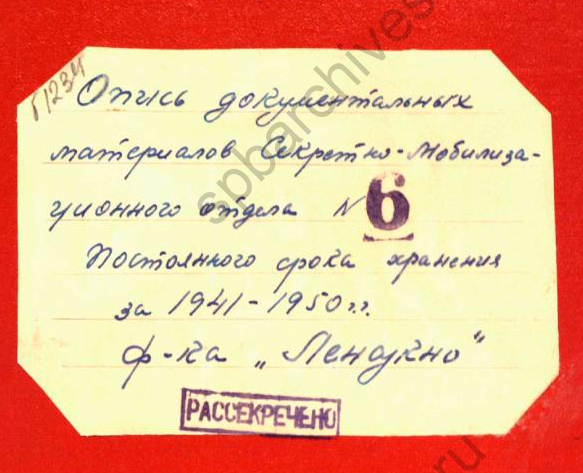 Г1234
Опись документальных
материалов Секретно-Мобилиза-
ционного отдела № 6
Постоянного срока хранения
за 1941-1950 г.г.
ф-ка „Ленсукно"
РАССЕКРЕЧЕНО
spbarchives
ru